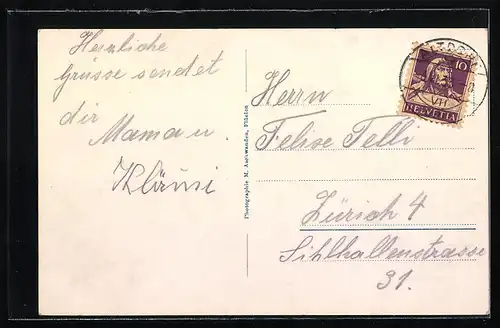 Herzliche
Grüsse sendet
dir
Mama u.
Kläusi
Photographie M. Aschwanden, Flüelen
10
VII
HELVETIA
Herrn
Felise Telli
Zürich 4
Sihlhallenstrasse
31.